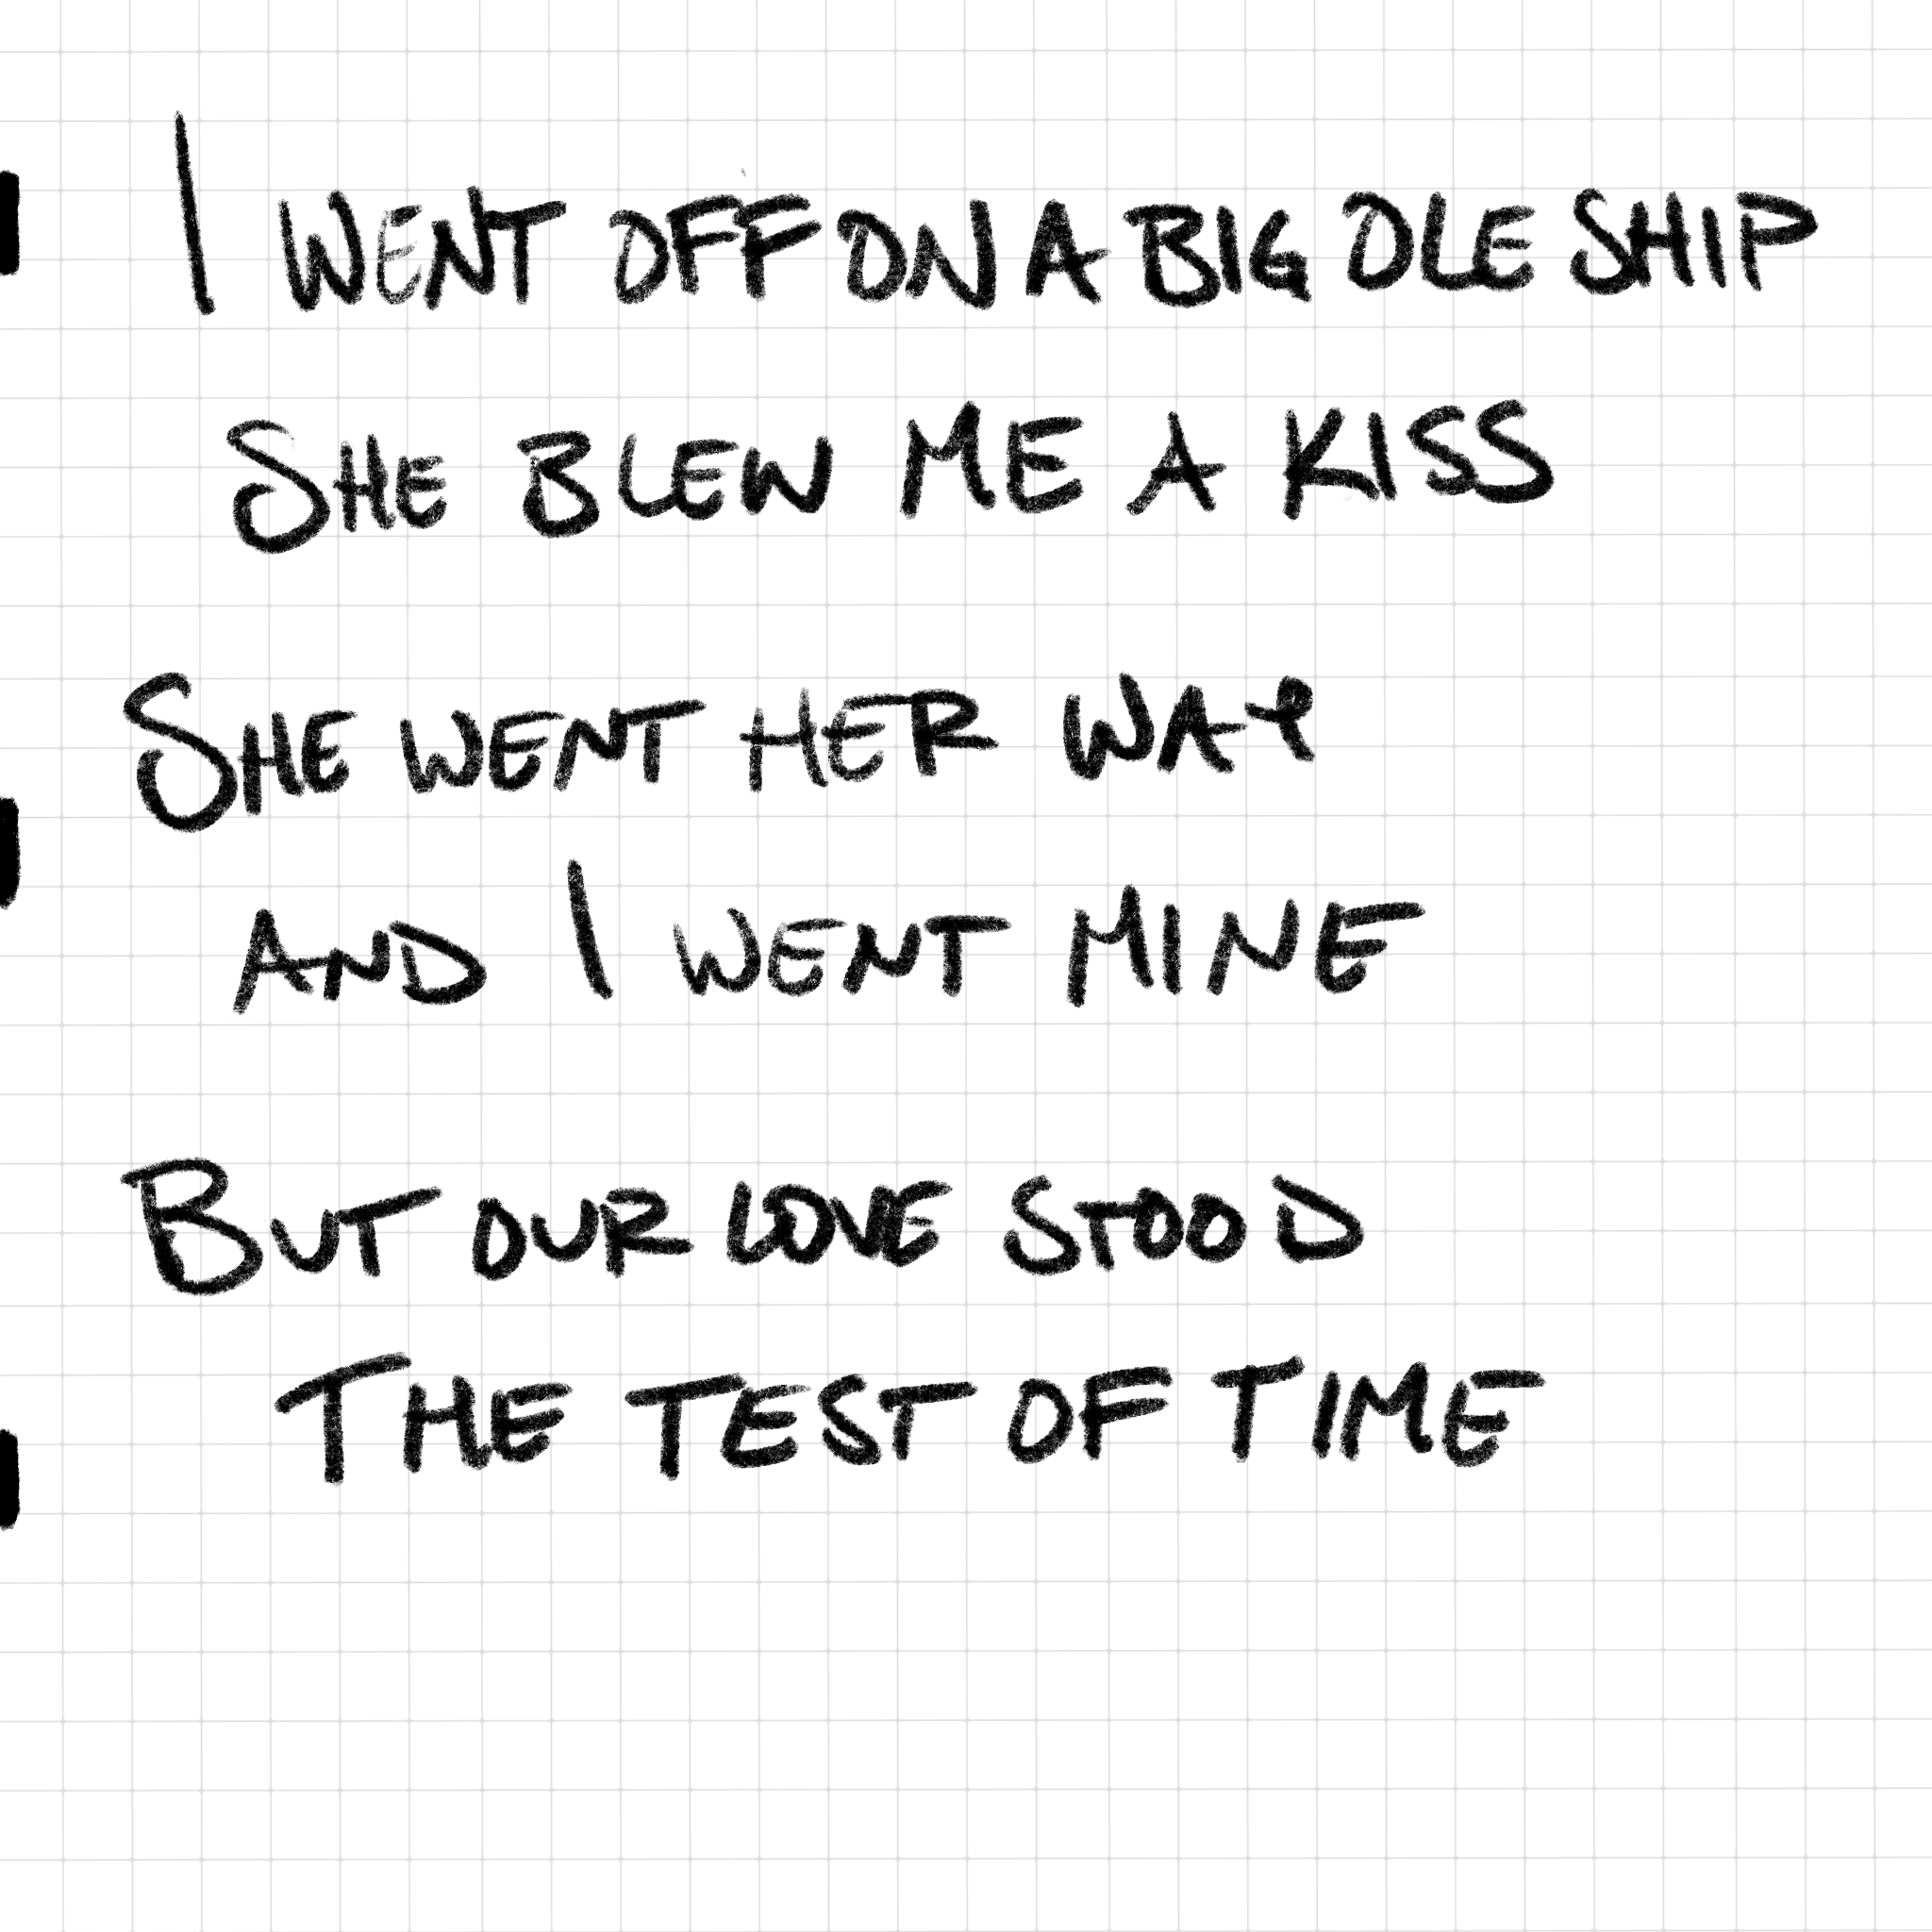 I WENT OFF ON A BIG OLE SHIP
SHE BLEW ME A KISS
SHE WENT HER WAY
AND I WENT MINE
BUT OUR LOVE STOOD
THE TEST OF TIME